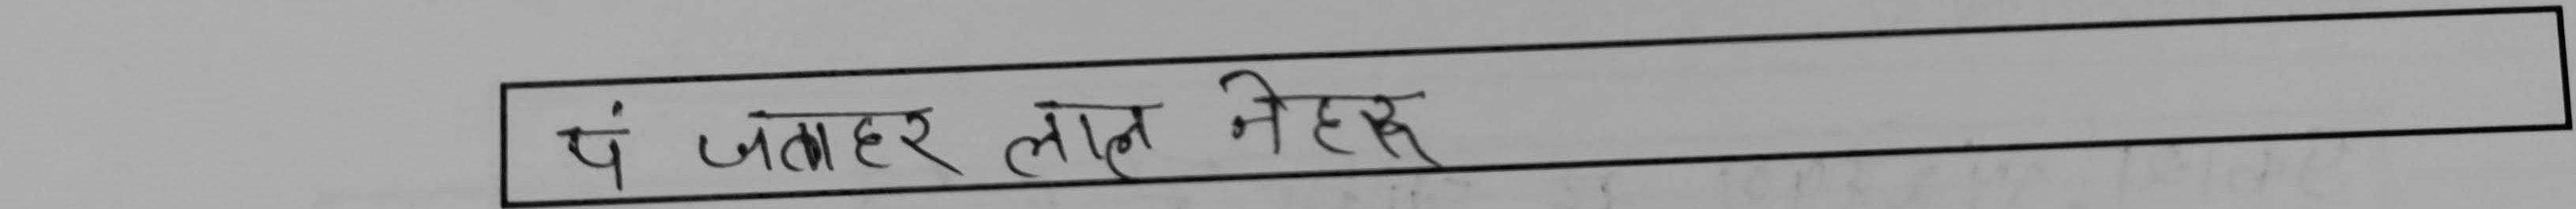 पं जवाहर लाल नेहरू